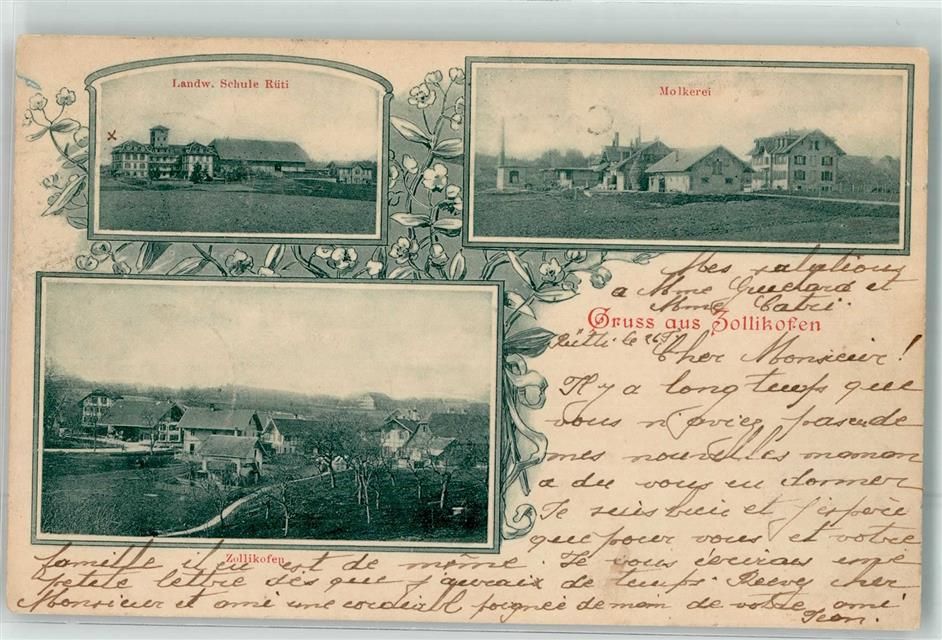 Landw. Schule Rüti
Molkerei
Mes salutations
a Mme Guichard et
Mme Catri.
Gruss aus Zollikofen
Rütti le 26
Cher Monsieur!
Il y a long temps que
vous n'aviez pas eu de
mes nouvelles maman
a du vous en donner
Je suis bien et j'espère
que pour vous et votre
Zollikofen
famille il en est de même. Je vous écrirais une
petite lettre dès que j'aurais de temps. Recevez cher
Monsieur et ami une cordiall poignée de main de votre ami
Jean.